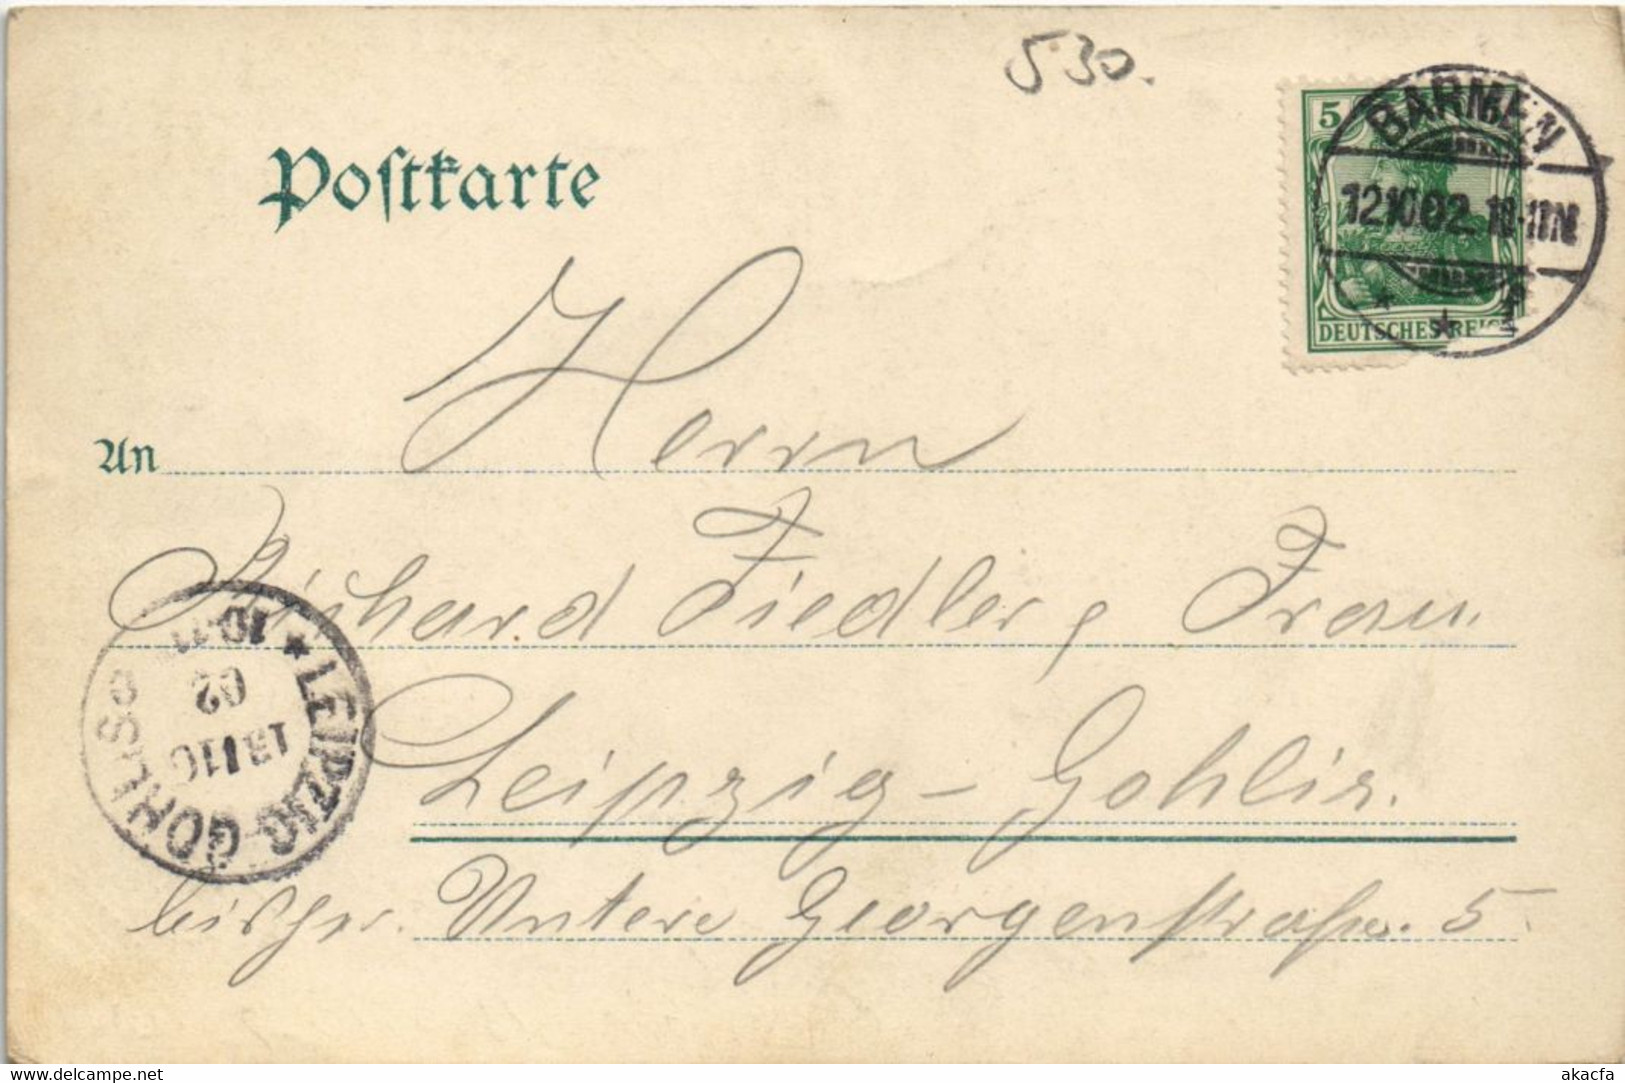 530.
Postkarte
5
BARMEN
12.10.02. 10-11N
DEUTSCHES REICH
Herrn
An
Richard Fiedler, Frau
Leipzig-Gohlis.
bisher. Untere Georgenstraße. 5
LEIPZIG-GOHLIS
13/10
02
10-11
https://www.delcampe.net
akacfa